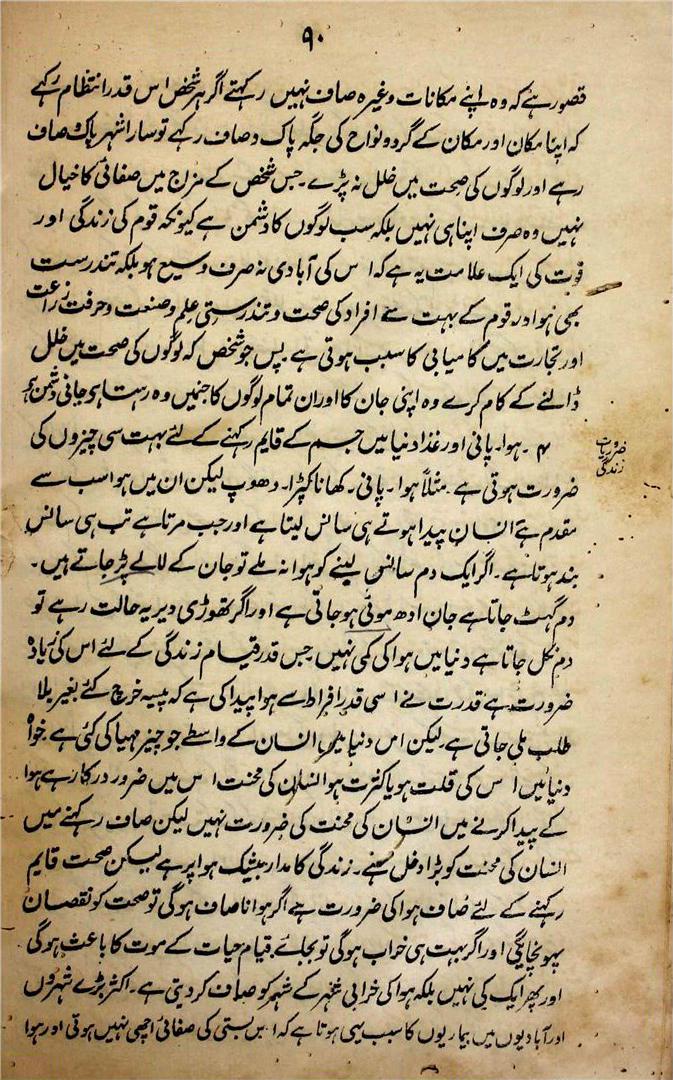 ۹۰
قصور ہے کہ وہ اپنے مکانات وغیرہ صاف نہیں رکہتے اگر ہر شخص اس قدر انتظام رکہے
کہ اپنا مکان اور مکان کے گرد و نواح کی جگہ پاک و صاف رکہے تو سارا شہر پاک و صاف
رہے اور لوگوں کی صحت میں خلل نہ پڑے۔ جس شخص کے مزاج میں صفائی کا خیال
نہیں وہ صرف اپنا ہی نہیں بلکہ سب لوگوں کا دشمن ہے کیونکہ قوم کی زندگی اور
قوت کی ایک علامت یہ ہے کہ اس کی آبادی نہ صرف وسیع ہو بلکہ تندرست
بھی ہو اور قوم کے بہت سے افراد کی صحت و تندرستی علم و صنعت و حرفت زراعت
اور تجارت میں کامیابی کا سبب ہوتی ہے پس جو شخص کہ لوگوں کی صحت میں خلل
ڈالنے کے کام کرے وہ اپنی جان کا اور ان تمام لوگوں کا جنمیں وہ رہتا ہے جانی دشمن ہے
ضروریات
زندگی
۴ ۔ ہوا۔ پانی اور غذا دنیا میں جسم کے قایم رکہنے کے لئے بہت سی چیزوں کی
ضرورت ہوتی ہے مثلاً ہوا۔ پانی۔ کھانا کپڑا۔ دھوپ لیکن ان میں ہوا سب سے
مقدم ہے انسان پیدا ہوتے ہی سانس لیتا ہے اور جب مرتا ہے تب ہی سانس
بند ہوتا ہے۔ اگر ایک دم سانس لینے کو ہوا نہ ملے تو جان کے لالے پڑ جاتے ہیں۔
دم گہٹ جاتا ہے جان ادھ ہوئی ہو جاتی ہے اور اگر تھوڑی دیر یہ حالت رہے تو
دم نکل جاتا ہے دنیا میں ہوا کی کمی نہیں جس قدر قیام زندگی کے لئے اس کی زیادہ
ضرورت ہے قدرت نے اسی قدر افراط سے ہوا پیدا کی ہے کہ پیسہ خرچ کئے بغیر بلا
طلب ملی جاتی ہے لیکن اس دنیا میں انسان کے واسطے جو چیز مہیا کی گئی ہے خواہ
دنیا میں اس کی قلت ہو یا کثرت ہو انسان کی محنت اس میں ضرور درکار ہے ہوا
کے پیدا کرنے میں انسان کی محنت کی ضرورت نہیں لیکن صاف رکہنے میں
انسان کی محنت کو بڑا دخل ہے۔ زندگی کا مدار بیشک ہوا پر ہے لیکن صحت قایم
رکہنے کے لئے صاف ہوا کی ضرورت ہے اگر ہوا ناصاف ہوگی تو صحت کو نقصان
پہونچائیگی اور اگر بہت ہی خراب ہوگی تو بجائے قیام حیات کے موت کا باعث ہوگی
اور پھر ایک کی نہیں بلکہ ہوا کی خرابی شہر کے شہر کو صاف کر دیتی ہے۔ اکثر بڑے شہروں
اور آبادیوں میں بیماریوں کا سبب یہی ہوتا ہے کہ اس بستی کی صفائی اچھی نہیں ہوتی اور ہوا